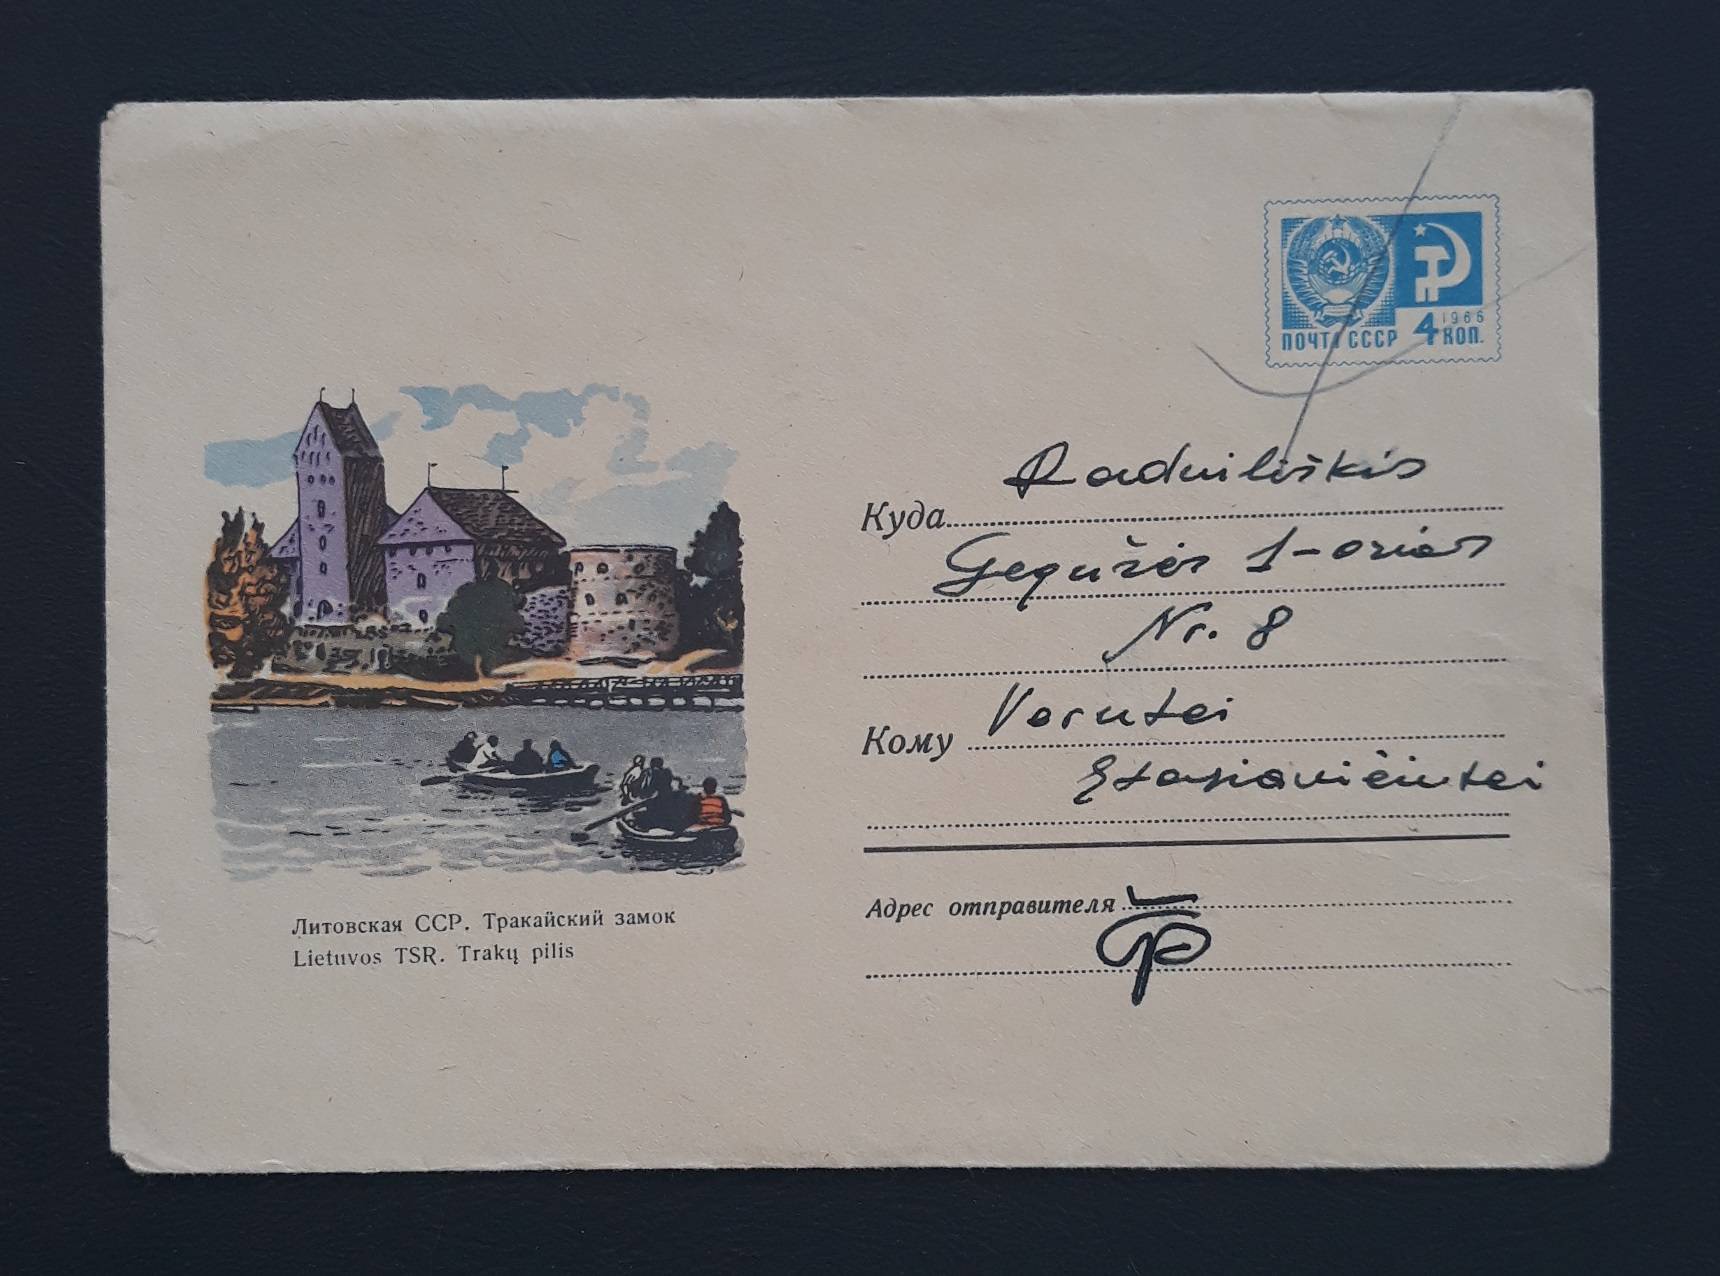 ПОЧТА СССР 4 1966 КОП.
Radviliškis
Куда
Gegužės 1-osios
Nr. 8
Кому Verutei
Stasiavičiutei
Адрес отправителя
Литовская ССР. Тракайский замок
Lietuvos TSR. Trakų pilis